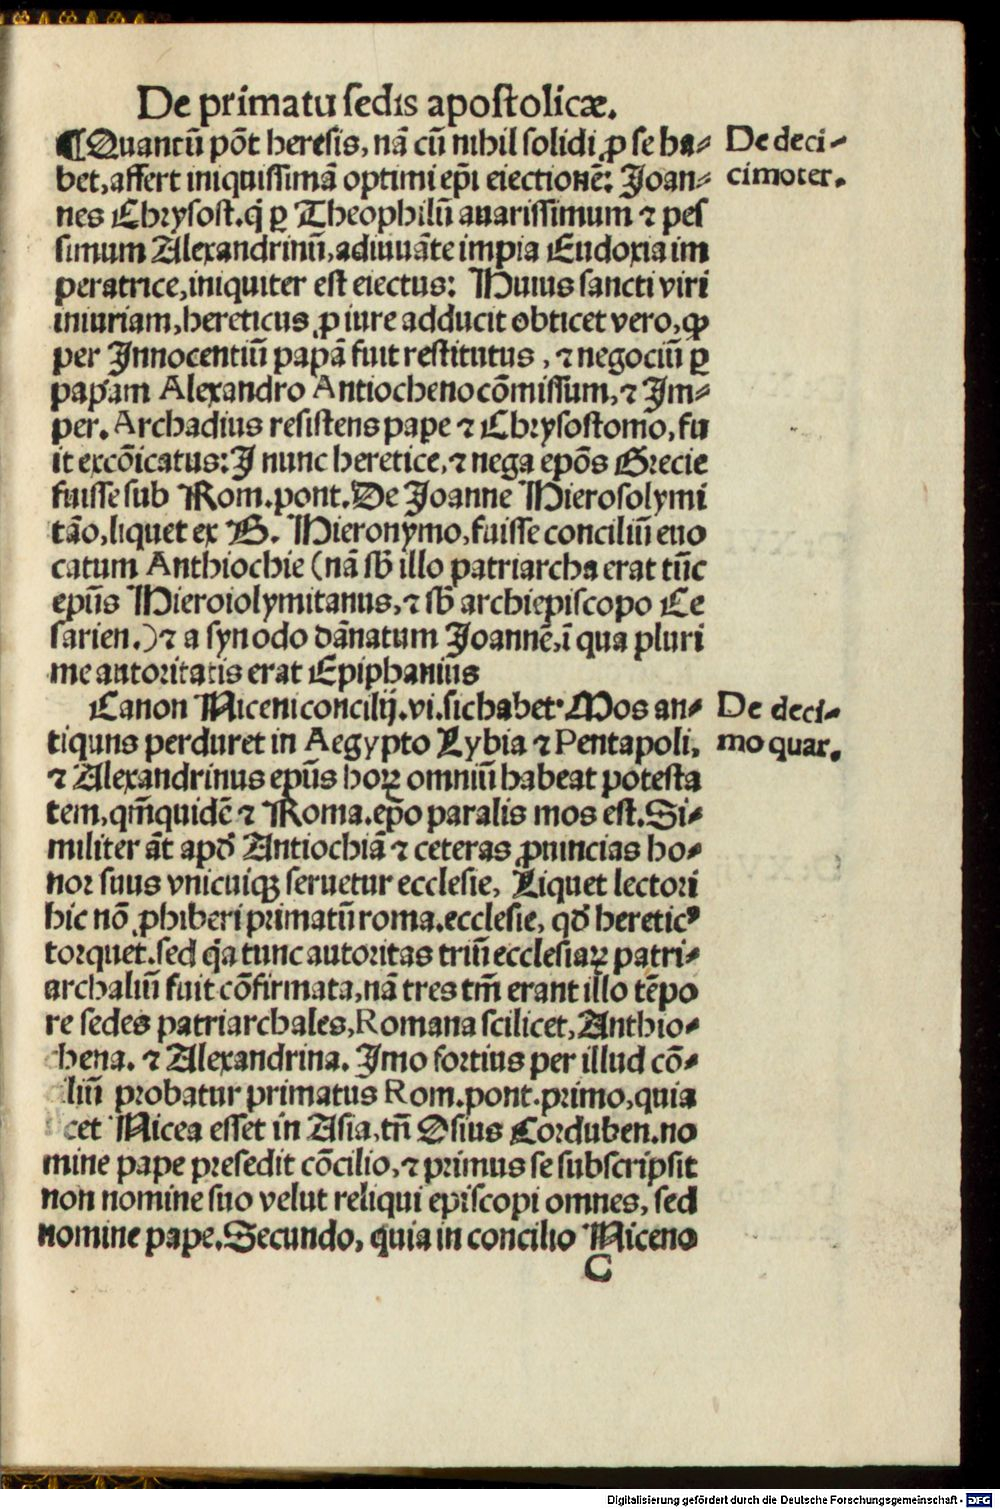 De primatu sedis apostolicæ.
¶Quantū põt heresis, nā cū nihil solidi ꝓ se ha⸗
bet, affert iniquissimā optimi ep̄i eiectionē: Joan⸗
nes Chrysost. q̇ ꝑ Theophilū auarissimum ⁊ pes
simum Alexandrinū, adiuuāte impia Eudoxia im
peratrice, iniquiter est eiectus: Huius sancti viri
iniuriam, hereticus ꝓ iure adducit obticet vero, ꝙ
per Innocentiū papā fuit restitutus, ⁊ negociū ꝑ
papam Alexandro Antiocheno cōmissum, ⁊ Im⸗
per. Archadius resistens pape ⁊ Chrysostomo, fu
it excōicatus: I nunc heretice, ⁊ nega epōs Grecie
fuisse sub Rom. pont. De Joanne Hierosolymi
tāo, liquet ex B. Hieronymo, fuisse conciliū euo
catum Anthiochie (nā sb̄ illo patriarcha erat tūc
epūs Hieroiolymitanus, ⁊ sb̄ archiepiscopo Ce
sarien.) ⁊ a synodo dānatum Joannē, ī qua pluri
me autoritatis erat Epiphanius
Canon Niceni concilij. vi. sic habet· Mos an⸗
tiquus perduret in Aegypto Lybia ⁊ Pentapoli,
⁊ Alexandrinus epūs hoꝝ omniū habeat potesta
tem, qm̄quidē ⁊ Roma. ep̄o paralis mos est. Si⸗
militer āt apd̓ Antiochiā ⁊ ceteras ꝓuincias ho⸗
nor suus vnicuiqꝫ seruetur ecclesie, Liquet lectori
hic nō ꝓhiberi primatū roma. ecclesie, qd̓ heretic⁹
torquet. sed q̇a tunc autoritas triū ecclesiaꝝ patri⸗
archaliū fuit cōfirmata, nā tres tm̄ erant illo tēpo
re sedes patriarchales, Romana scilicet, Anthio⸗
chena. ⁊ Alexandrina. Imo fortius per illud cō⸗
liū probatur primatus Rom. pont. primo, quia
cet Nicea esset in Asia, tn̄ Osius Corduben. no
mine pape presedit cōcilio, ⁊ primus se subscripsit
non nomine suo velut reliqui episcopi omnes, sed
nomine pape. Secundo, quia in concilio Niceno
C
De deci⸗
cimoter.
De deci⸗
mo quar.
Digitalisierung gefördert durch die Deutsche Forschungsgemeinschaft - DFG